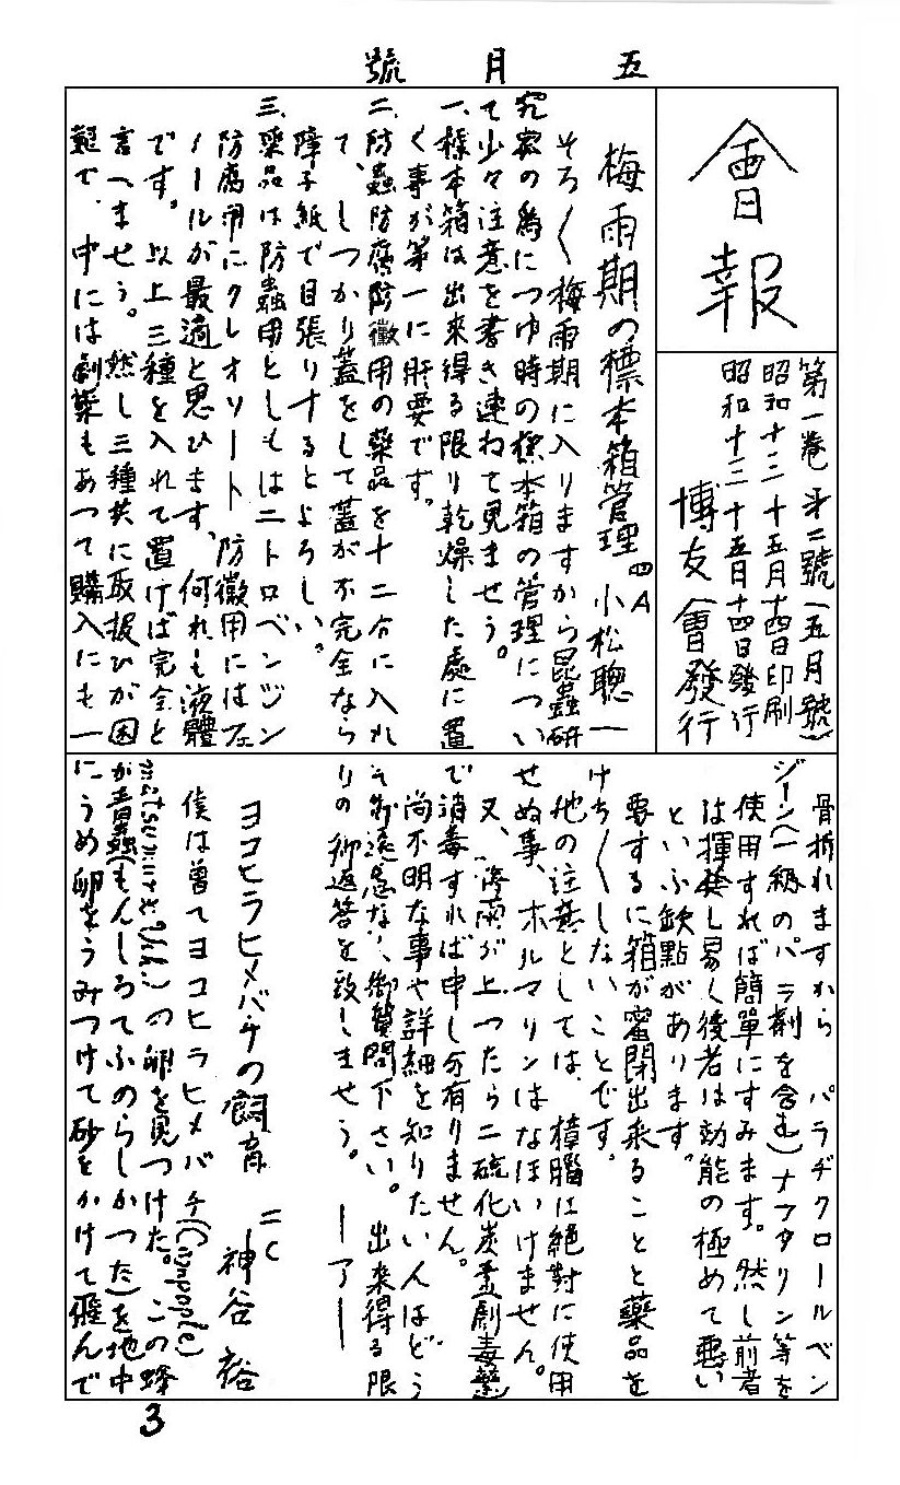 五月號
會報
第一巻 第二號(五月號)
昭和十三 十五月十四日印刷
昭和十三 十五日十四日發行
博友會發行
梅雨期の標本箱管理 四A 小松聰一
そろ〱梅雨期に入りますから昆蟲研
究家の爲につゆ時の標本箱の管理につい
て少々注意を書き連ねて見ませう。
一、標本箱は出來得る限り乾燥した處に置
く事が第一に肝要です。
二、防蟲防腐防黴用の藥品を十二分に入れ
て、しつかり蓋をして蓋が不完全なら
障子紙で目張りするとよろしい。
三、藥品は防蟲用としてはニトロベンヅン
防腐用にクレオソート、防黴用には石
ノールが最適と思ひます、何れも液體
です。以上三種を入れて置けば完全と
言へませう。然し三種共に取扱ひが困
難で、中には劇藥もあつて購入にも一
骨折れますから パラヂクロールベン
ジーン(一級のパラ劑を含む)ナフタリン等を
使用すれば簡單にすみます。然し前者
は揮發し易く後者は効能の極めて悪い
といふ欽點があります。
要するに箱が蜜閉出來ることと藥品を
けち〱しないことです。
他の注意としては、樟腦は絕對に使用
せぬ事、ホルマリンはなほいけません。
又、梅雨が上つたら二硫化炭素劇毒藥
で消毒すれば申し分有りません。
尚不明な事や詳細を知りたい人はどう
ぞ御遠慮なく御質問下さい。出來得る限
りの御返答を致しませう。 ―ア―
ヨコヒラヒメバチの飼育 二C 神谷裕
僕は曾てヨコヒラヒメバチ(
matsumurae, Uch.)の卵を見つけた。この蜂
が青蟲(もんしろてふのらしかつた)を地中
にうめ卵をうみつけて砂をかけて飛んで
3